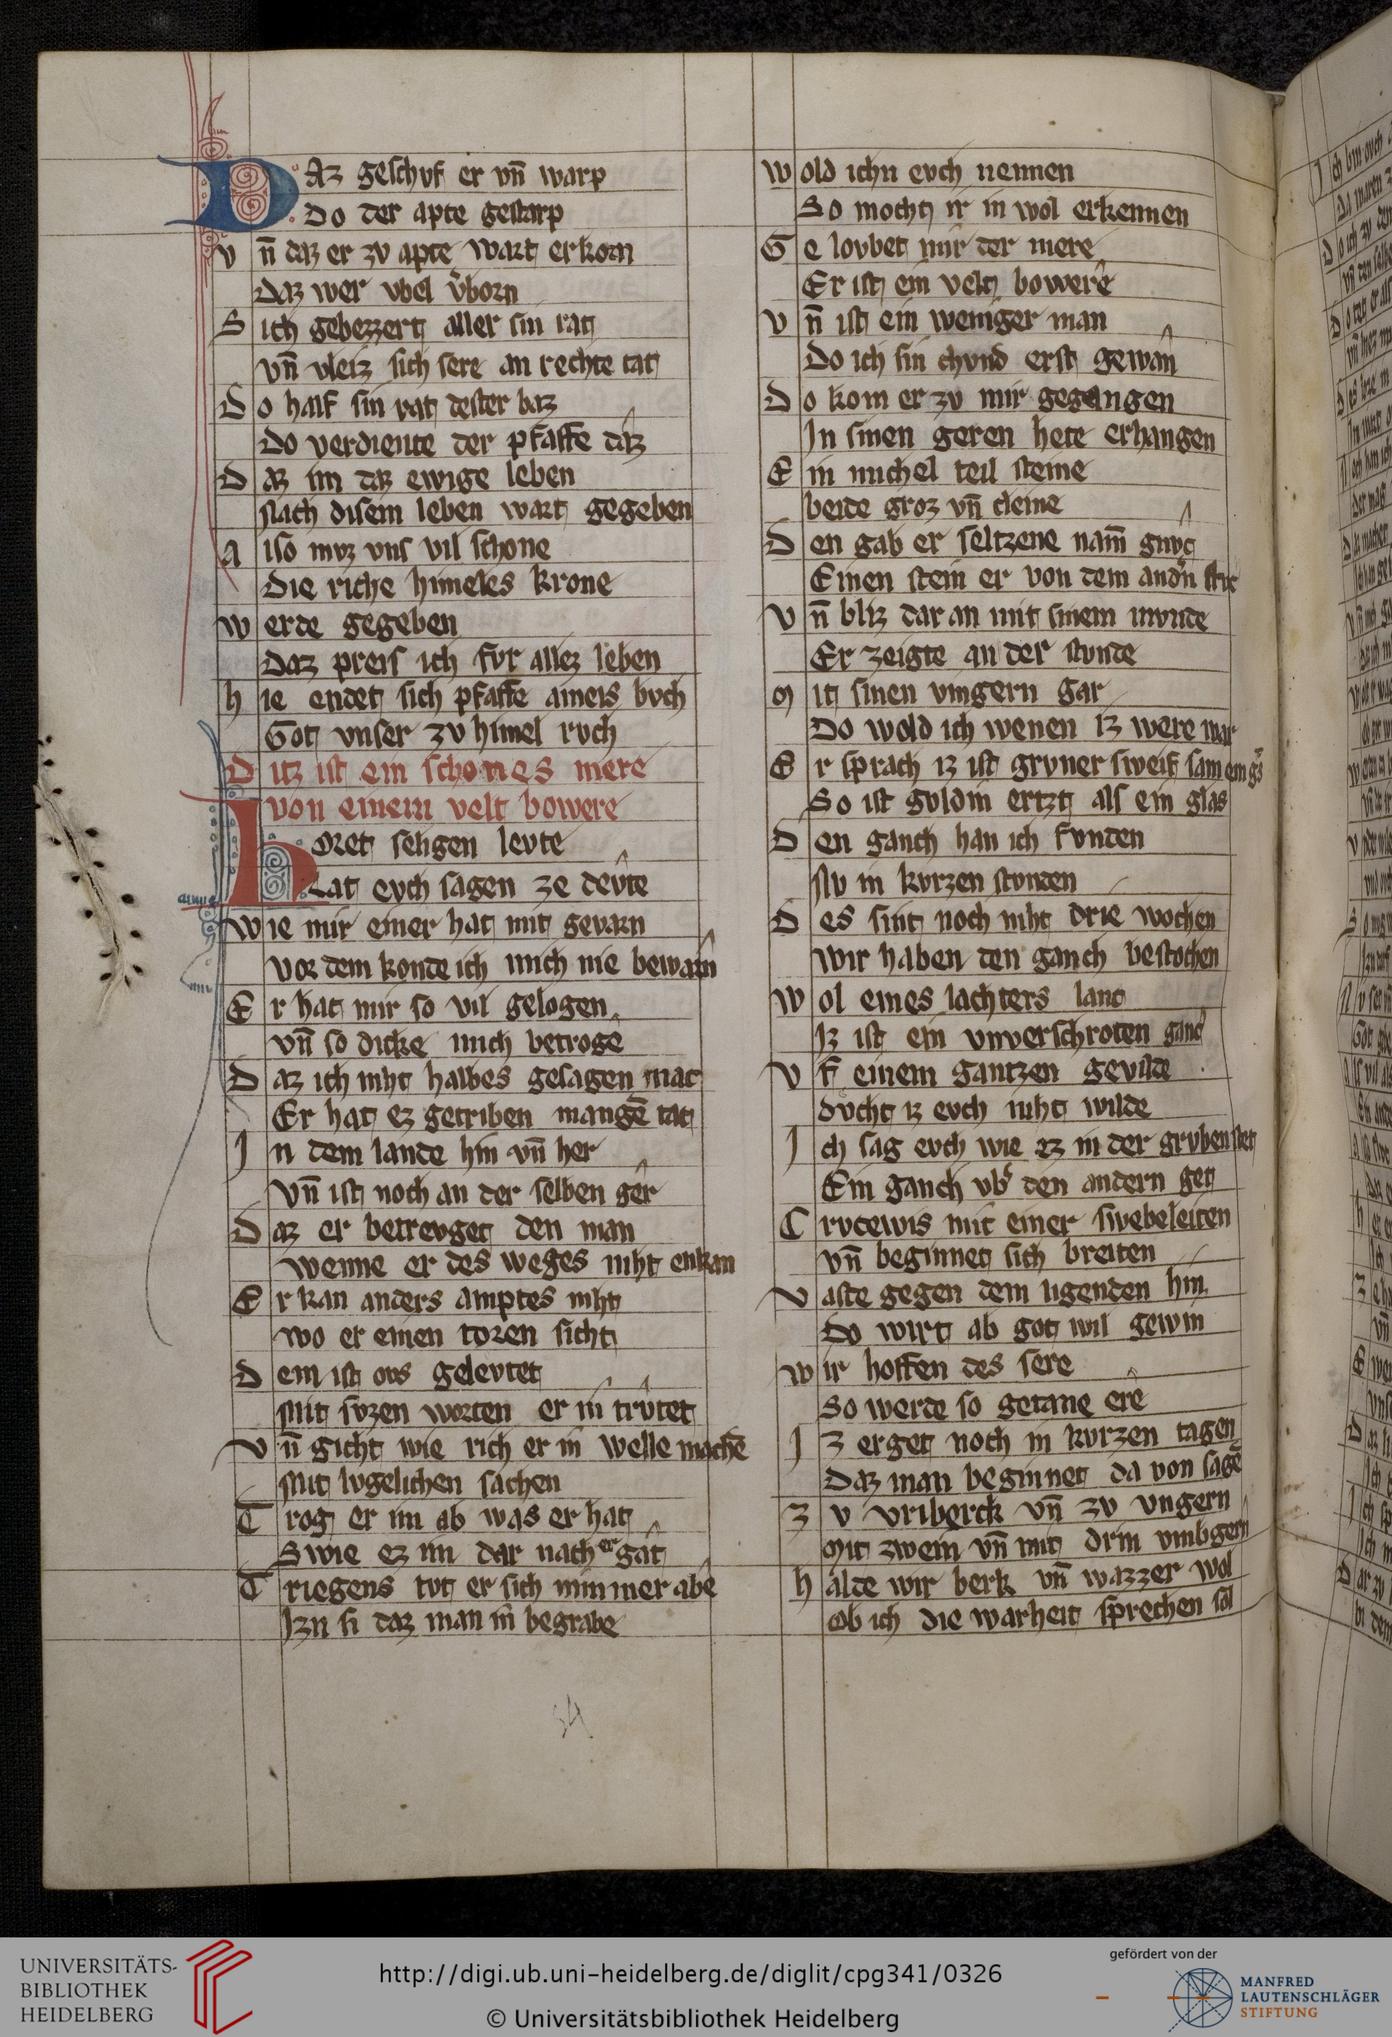 Daz geschvf er vn̄ warp
Do der apte gestarp
vn̄ daz er zv apte wart erkorn
Daz wer vbel v̂born
Sich gebezzert aller sin rat
vn̄ vleiz sich sere an rechte tat
Do half sin rat dester baz
Do verdiente der pfaffe daz
Daz im daz ewige leben
Nach disem leben wart gegeben
Also mvz vns vil schone
Die riche himeles krone
werde gegeben
Daz preis ich fvr allez leben
hie endet sich pfaffe ameis bvch
Got vnser zv himel rvch
Ditz ist ein schones mere
von einem velt bowere
horet seligen levte
Lat evch sagen ze devte
wie mir einer hat mit gevarn
vor dem konde ich mich nie bewarn
Er hat mir so vil gelogen
vn̄ so dicke mich betroge
Daz ich niht halbes gesagen mac
Er hat ez getriben mangē tac
Jn dem lande hin vn̄ her
vn̄ ist noch an der selben ger
Daz er betrevget den man
wenne er des weges niht enkan
Er kan anders amptes niht
wo er einen toren sicht
Dem ist ors gelevtet
Mit svzen worten er in trvtet
vn̄ gicht wie rich er in welle machē
Mit lvgelichen sachen
Trog er im ab was er hat
Swie ez im dar nach er gat
Triegens tvt er sich nimmer abe
Jzn si daz man in begrabe
54
wold ichn evch nennen
So mocht ir in wol erkennen
Gelovbet mir der mere
Er ist ein velt bowere
vn̄ ist ein weniger man
Do ich sin chvnd erst gewan
Do kom er zv mir gegangen
Jn sinen geren hete erhangen
Ein michel teil steine
beide groz vn̄ cleine
Den gab er seltzene nam̄ gnvc
Einen stein er von dem andn̄ slvc
vn̄ bliz dar an mit sinem mvnde
Er zeigte an der stvnde
Mit sinen vingern gar
Do wold ich wenen iz were war
Er sprach iz ist grvner sweif sam ein gs
So ist goldin ertzt als ein glas
Den ganch han ich fvnden
Nv in kvrzen stvnden
Des sint noch niht drie wochen
wir haben den ganch bestochen
wol eines lachters lanc
Jz ist ein vnverschroten ganc
vf einem gantzen gevilde
dvcht iz evch niht wilde
Jch sag evch wie ez in der grvben stet
Ein ganch vb den andern get
Crvcewis mit einer swebeleiten
vn̄ beginnet sich breiten
vaste gegen dem ligenden hin
Do wirt ab got wil gewin
wir hoffen des sere
So werde so getane ere
Jz erget noch in kvrzen tagen
Daz man beginnet da von sagē
Zv vriberck vn̄ zv vngern
Mit zwein vn̄ mit drin vmbgern
halde wir berk vn̄ wazzer wol
Ob ich die warheit sprechen sol
UNIVERSITÄTS-
BIBLIOTHEK
HEIDELBERG
http://digi.ub.uni-heidelberg.de/diglit/cpg341/0326
© Universitätsbibliothek Heidelberg
gefördert von der
MANFRED
LAUTENSCHLÄGER
STIFTUNG